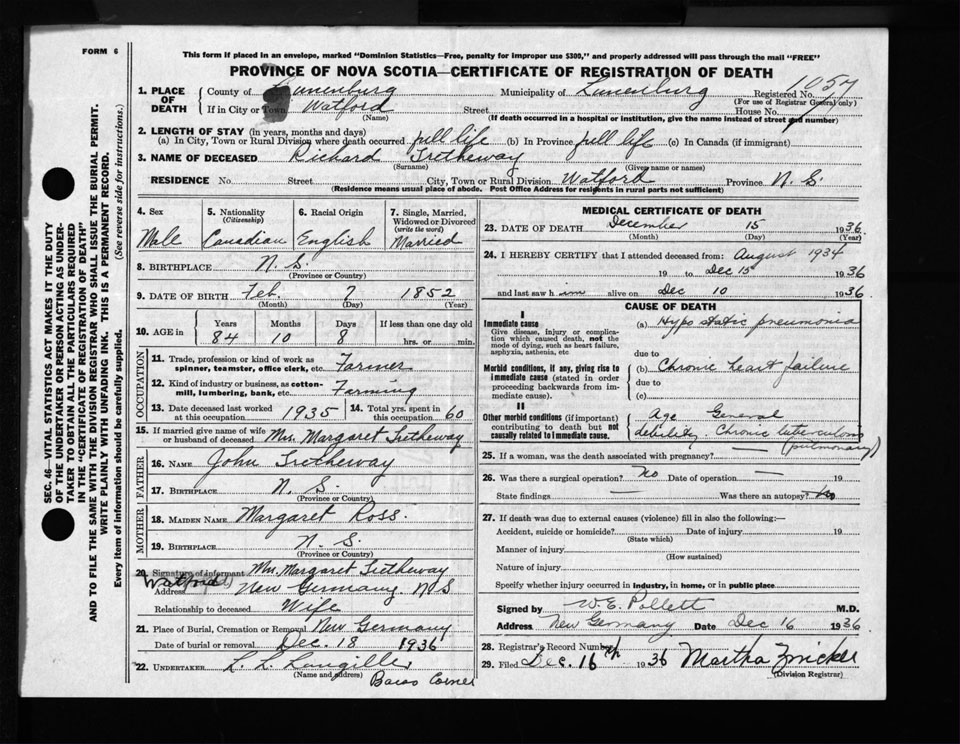 FORM 6
This form if placed in an envelope, marked "Dominion Statistics—Free, penalty for improper use $300," and properly addressed will pass through the mail "FREE"
PROVINCE OF NOVA SCOTIA—CERTIFICATE OF REGISTRATION OF DEATH
1. PLACE OF DEATH County of Lunenburg Municipality of Lunenburg Registered No. 1057
(For use of Registrar General only)
If in City or Town Watford Street House No.
(Name) (If death occurred in a hospital or institution, give the name instead of street and number)
2. LENGTH OF STAY (in years, months and days)
(a) In City, Town or Rural Division where death occurred full life (b) In Province full life (c) In Canada (if immigrant)
3. NAME OF DECEASED Richard Tretheway
(Surname) (Given name or names)
RESIDENCE No. Street City, Town or Rural Division Watford Province N.S
(Residence means usual place of abode. Post Office Address for residents in rural parts not sufficient)
4. Sex 5. Nationality (Citizenship) 6. Racial Origin 7. Single, Married, Widowed or Divorced (write the word)
Male Canadian English Married
8. BIRTHPLACE N.S.
(Province or Country)
9. DATE OF BIRTH Feb. 7 1852
(Month) (Day) (Year)
10. AGE in Years Months Days If less than one day old
84 10 8 hrs. or min.
OCCUPATION
11. Trade, profession or kind of work as spinner, teamster, office clerk, etc. Farmer
12. Kind of industry or business, as cotton-mill, lumbering, bank, etc. Farming
13. Date deceased last worked at this occupation 1935 14. Total yrs. spent in this occupation 60
15. If married give name of wife or husband of deceased Mrs. Margaret Tretheway
FATHER
16. NAME John Tretheway
17. BIRTHPLACE N.S.
(Province or Country)
MOTHER
18. MAIDEN NAME Margaret Ross.
19. BIRTHPLACE N.S.
(Province or Country)
20. Signature of informant Mrs. Margaret Tretheway
Watford
Address New Germany. N S
Relationship to deceased Wife
21. Place of Burial, Cremation or Removal New Germany
Date of burial or removal Dec. 18 1936
22. UNDERTAKER L. L. Langille
(Name and address)
Corner
MEDICAL CERTIFICATE OF DEATH
23. DATE OF DEATH December 15 1936
(Month) (Day) (Year)
24. I HEREBY CERTIFY that I attended deceased from: August 1934
19 to Dec 15 1936
and last saw him alive on Dec 10 1936
CAUSE OF DEATH
I
Immediate cause
Give disease, injury or complication which caused death, not the mode of dying, such as heart failure, asphyxia, asthenia, etc
(a) Hypostatic pneumonia
due to
Morbid conditions, if any, giving rise to immediate cause (stated in order proceeding backwards from immediate cause).
(b) Chronic heart failure
due to
(c)
II
Other morbid conditions (if important) contributing to death but not causally related to immediate cause.
Age General
debility Chronic tuberculosis
(pulmonary)
25. If a woman, was the death associated with pregnancy? —
26. Was there a surgical operation? No Date of operation — 19
State findings — Was there an autopsy? No
27. If death was due to external causes (violence) fill in also the following:—
Accident, suicide or homicide? Date of injury 19
(State which)
Manner of injury
(How sustained)
Nature of injury
Specify whether injury occurred in industry, in home, or in public place
Signed by W.E. Pollett M.D.
Address New Germany Date Dec 16 1936
28. Registrar's Record Number
29. Filed Dec. 16th 1936 Martha Zwicker
(Division Registrar)
SEC. 46—VITAL STATISTICS ACT MAKES IT THE DUTY
OF THE UNDERTAKER OR PERSON ACTING AS UNDER-
TAKER TO OBTAIN ALL THE PARTICULARS REQUIRED
IN THE "CERTIFICATE OF REGISTRATION OF DEATH"
AND TO FILE THE SAME WITH THE DIVISION REGISTRAR WHO SHALL ISSUE THE BURIAL PERMIT.
WRITE PLAINLY WITH UNFADING INK. THIS IS A PERMANENT RECORD.
Every item of information should be carefully supplied. (See reverse side for instructions.)